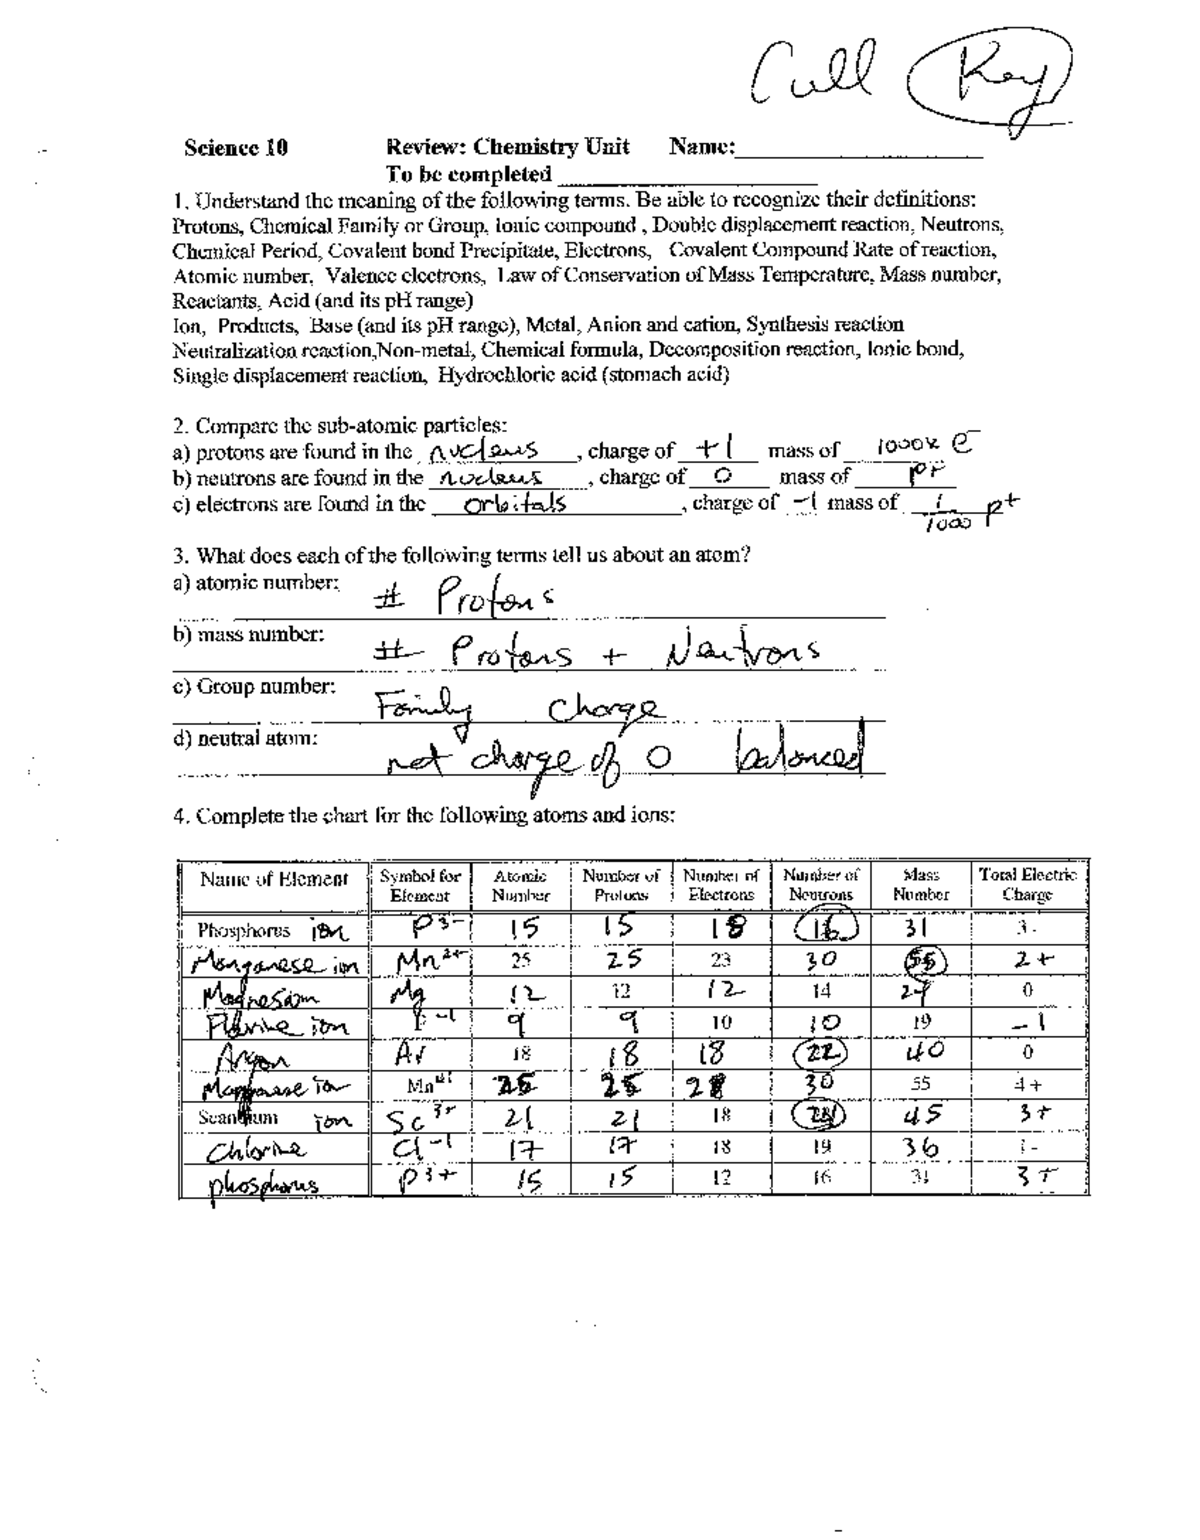 Cull Key
Science 10 Review: Chemistry Unit Name:
To be completed
1. Understand the meaning of the following terms. Be able to recognize their definitions:
Protons, Chemical Family or Group, Ionic compound , Double displacement reaction, Neutrons,
Chemical Period, Covalent bond Precipitate, Electrons, Covalent Compound Rate of reaction,
Atomic number, Valence electrons, Law of Conservation of Mass Temperature, Mass number,
Reactants, Acid (and its pH range)
Ion, Products, Base (and its pH range), Metal, Anion and cation, Synthesis reaction
Neutralization reaction,Non-metal, Chemical formula, Decomposition reaction, Ionic bond,
Single displacement reaction, Hydrochloric acid (stomach acid)
2. Compare the sub-atomic particles:
a) protons are found in the nucleus, charge of +1 mass of 1000x e-
b) neutrons are found in the nucleus, charge of 0 mass of p+
c) electrons are found in the orbitals, charge of -1 mass of 1/1000 p+
3. What does each of the following terms tell us about an atom?
a) atomic number: # Protons
b) mass number: # Protons + Neutrons
c) Group number: Family charge
d) neutral atom: net charge of 0 balanced
4. Complete the chart for the following atoms and ions:
Name of Element Symbol for Element Atomic Number Number of Protons Number of Electrons Number of Neutrons Mass Number Total Electric Charge
Phosphorus ion P3- 15 15 18 16 31 3-
Manganese ion Mn2+ 25 25 23 30 55 2+
Magnesium Mg 12 12 12 14 0
Fluorine ion F-1 9 9 10 10 19 -1
Argon Ar 18 18 18 22 40 0
Manganese ion Mn 25 25 30 55 4+
Scandium ion Sc3+ 21 21 18 24 45 3+
Chlorine Cl-1 17 17 18 19 36 1-
phosphorus P3+ 15 15 12 16 31 3+